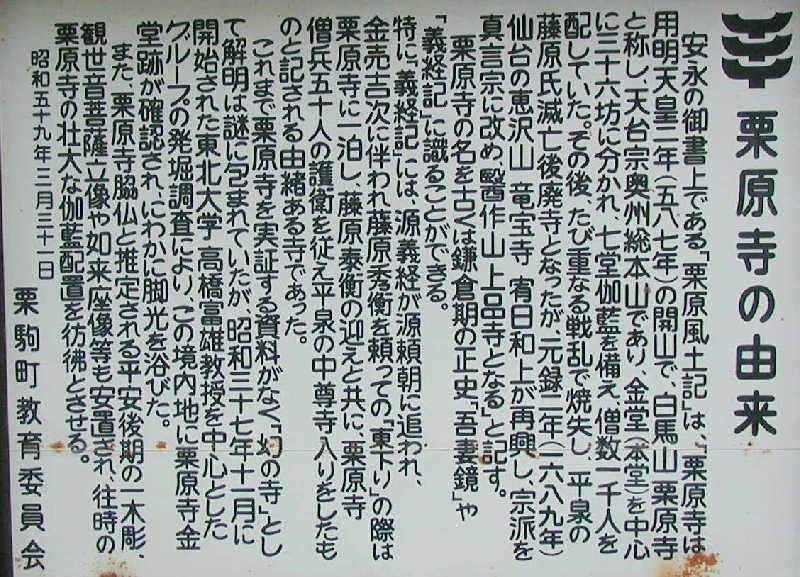 栗原寺の由来
安永の御書上である「栗原風土記」は、「栗原寺は
用明天皇二年(五八七年)の開山で、白馬山栗原寺
と称し、天台宗奥州総本山であり、金堂(本堂)を中心
に三十六坊に分かれ、七堂伽藍を備え、僧数一千人を
配していた。その後、たび重なる戦乱で焼失し、平泉の
藤原氏滅亡後廃寺となったが、元録二年(一六八九年)
仙台の恵沢山 竜宝寺 宥日和上が再興し、宗派を
真言宗に改め、醫作山 上品寺となる」と記す。
栗原寺の名を古くは鎌倉期の正史「吾妻鏡」や
「義経記」に識ることができる。
特に、「義経記」には、源義経が源頼朝に追われ、
金売吉次に伴われ藤原秀衡を頼っての「東下り」の際は
栗原寺に一泊し、藤原泰衡の迎えと共に、栗原寺
僧兵五十人の護衛を従え平泉の中尊寺入りをしたも
のと記される由緒ある寺であった。
これまで栗原寺を実証する資料がなく「幻の寺」とし
て解明は謎に包まれていたが、昭和三十七年十一月に
開始された東北大学 高橋富雄教授を中心とした
グループの発掘調査により、この境内地に栗原寺金
堂跡が確認され、にわかに脚光を浴びた。
また、栗原寺脇仏と推定される平安後期の一木彫、
観世音菩薩立像や如来座像等も安置され、往時の
栗原寺の壮大な伽藍配置を彷彿とさせる。
昭和五十九年三月三十一日
栗駒町教育委員会